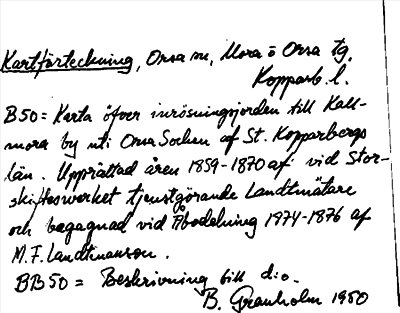 Kartförteckning, Orsa sn, Mora o Orsa tg,
Kopparb. l.
B50 = Karta öfver inrösningsjorden till Kall-
mora by uti Orsa Socken af St. Kopparbergs
län. Upprättad åren 1859-1870 af vid Stor-
skifteswerket tjenstgörande Landtmätare
och begagnad vid Åbodelning 1974-1876 af
M.F. Landtmanson.
BB50 = Beskrivning till d:o.
B. Granholm 1980